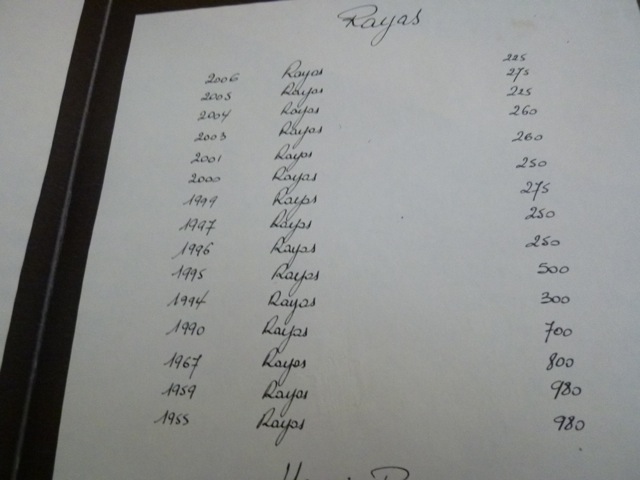 Rayas
2006 Rayas 225
2005 Rayas 275
2004 Rayas 225
2003 Rayas 260
2001 Rayas 260
2000 Rayas 250
1999 Rayas 275
1997 Rayas 250
1996 Rayas 250
1995 Rayas 500
1994 Rayas 300
1990 Rayas 700
1967 Rayas 800
1959 Rayas 980
1955 Rayas 980